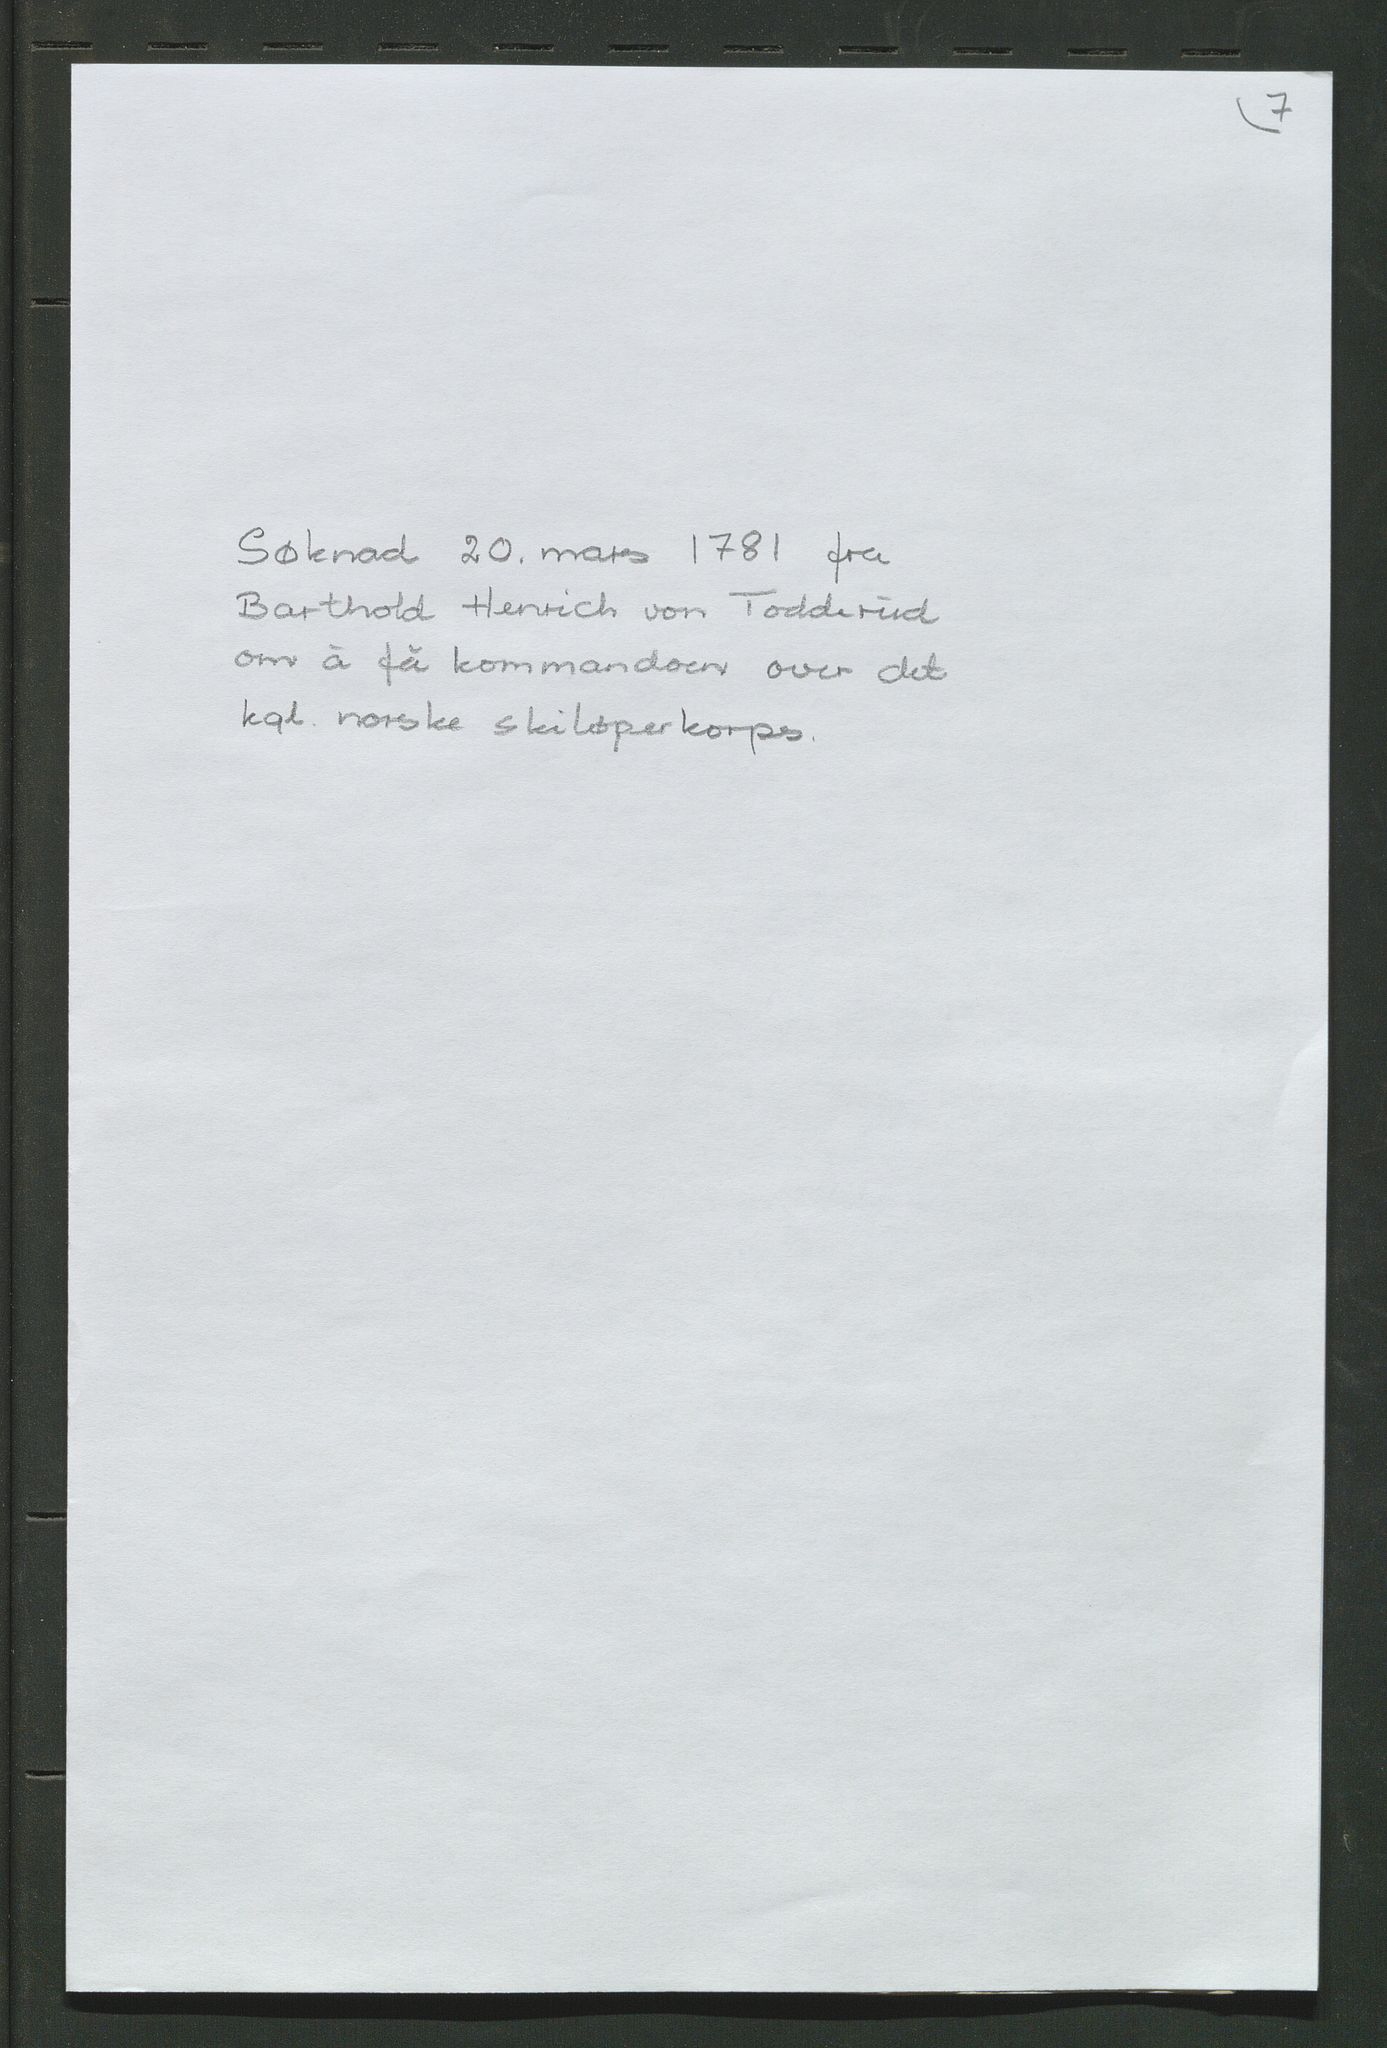 7
Søknad 20. mars 1781 fra
Barthold Henrich von Todderud
om å få kommandoen over det
kgl. norske skiløperkorps.